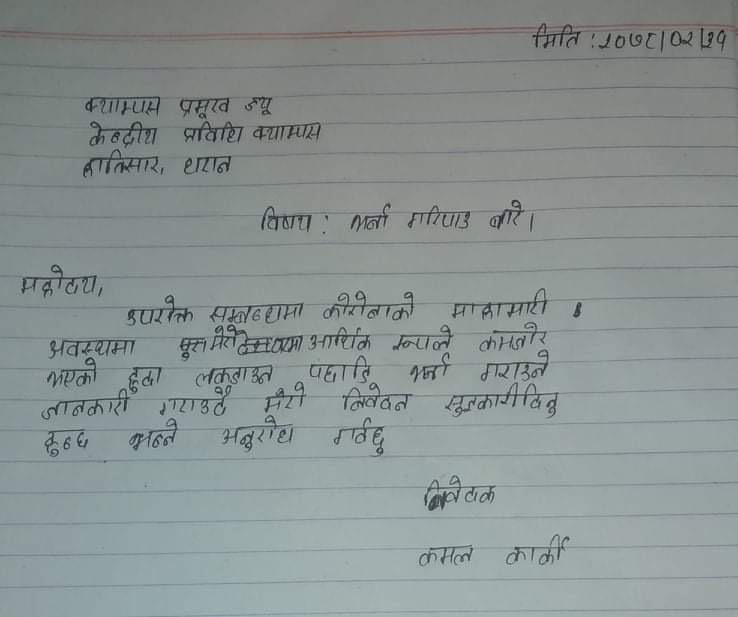 मिति : २०७८/०२/२१
क्याम्पस प्रमूख ज्यू
केन्द्रीय प्रविधि क्याम्पस
हात्तिसार, धरान
विषय : भर्ना गरिपाउ बारे ।
महोदय,
उपरोक्त सम्बन्धमा कोरोनाको माहामारी
अवस्थामा मेरो आर्थिक रूपले कमजोर
भएको हुदा लकडाउन पछाडि भर्ना गराउने
जानकारी गराउदै मेरो निवेदन सुइकारीदिनु
हुन्छ भन्ने अनुरोध गर्दछु
निवेदक
कमल कार्की